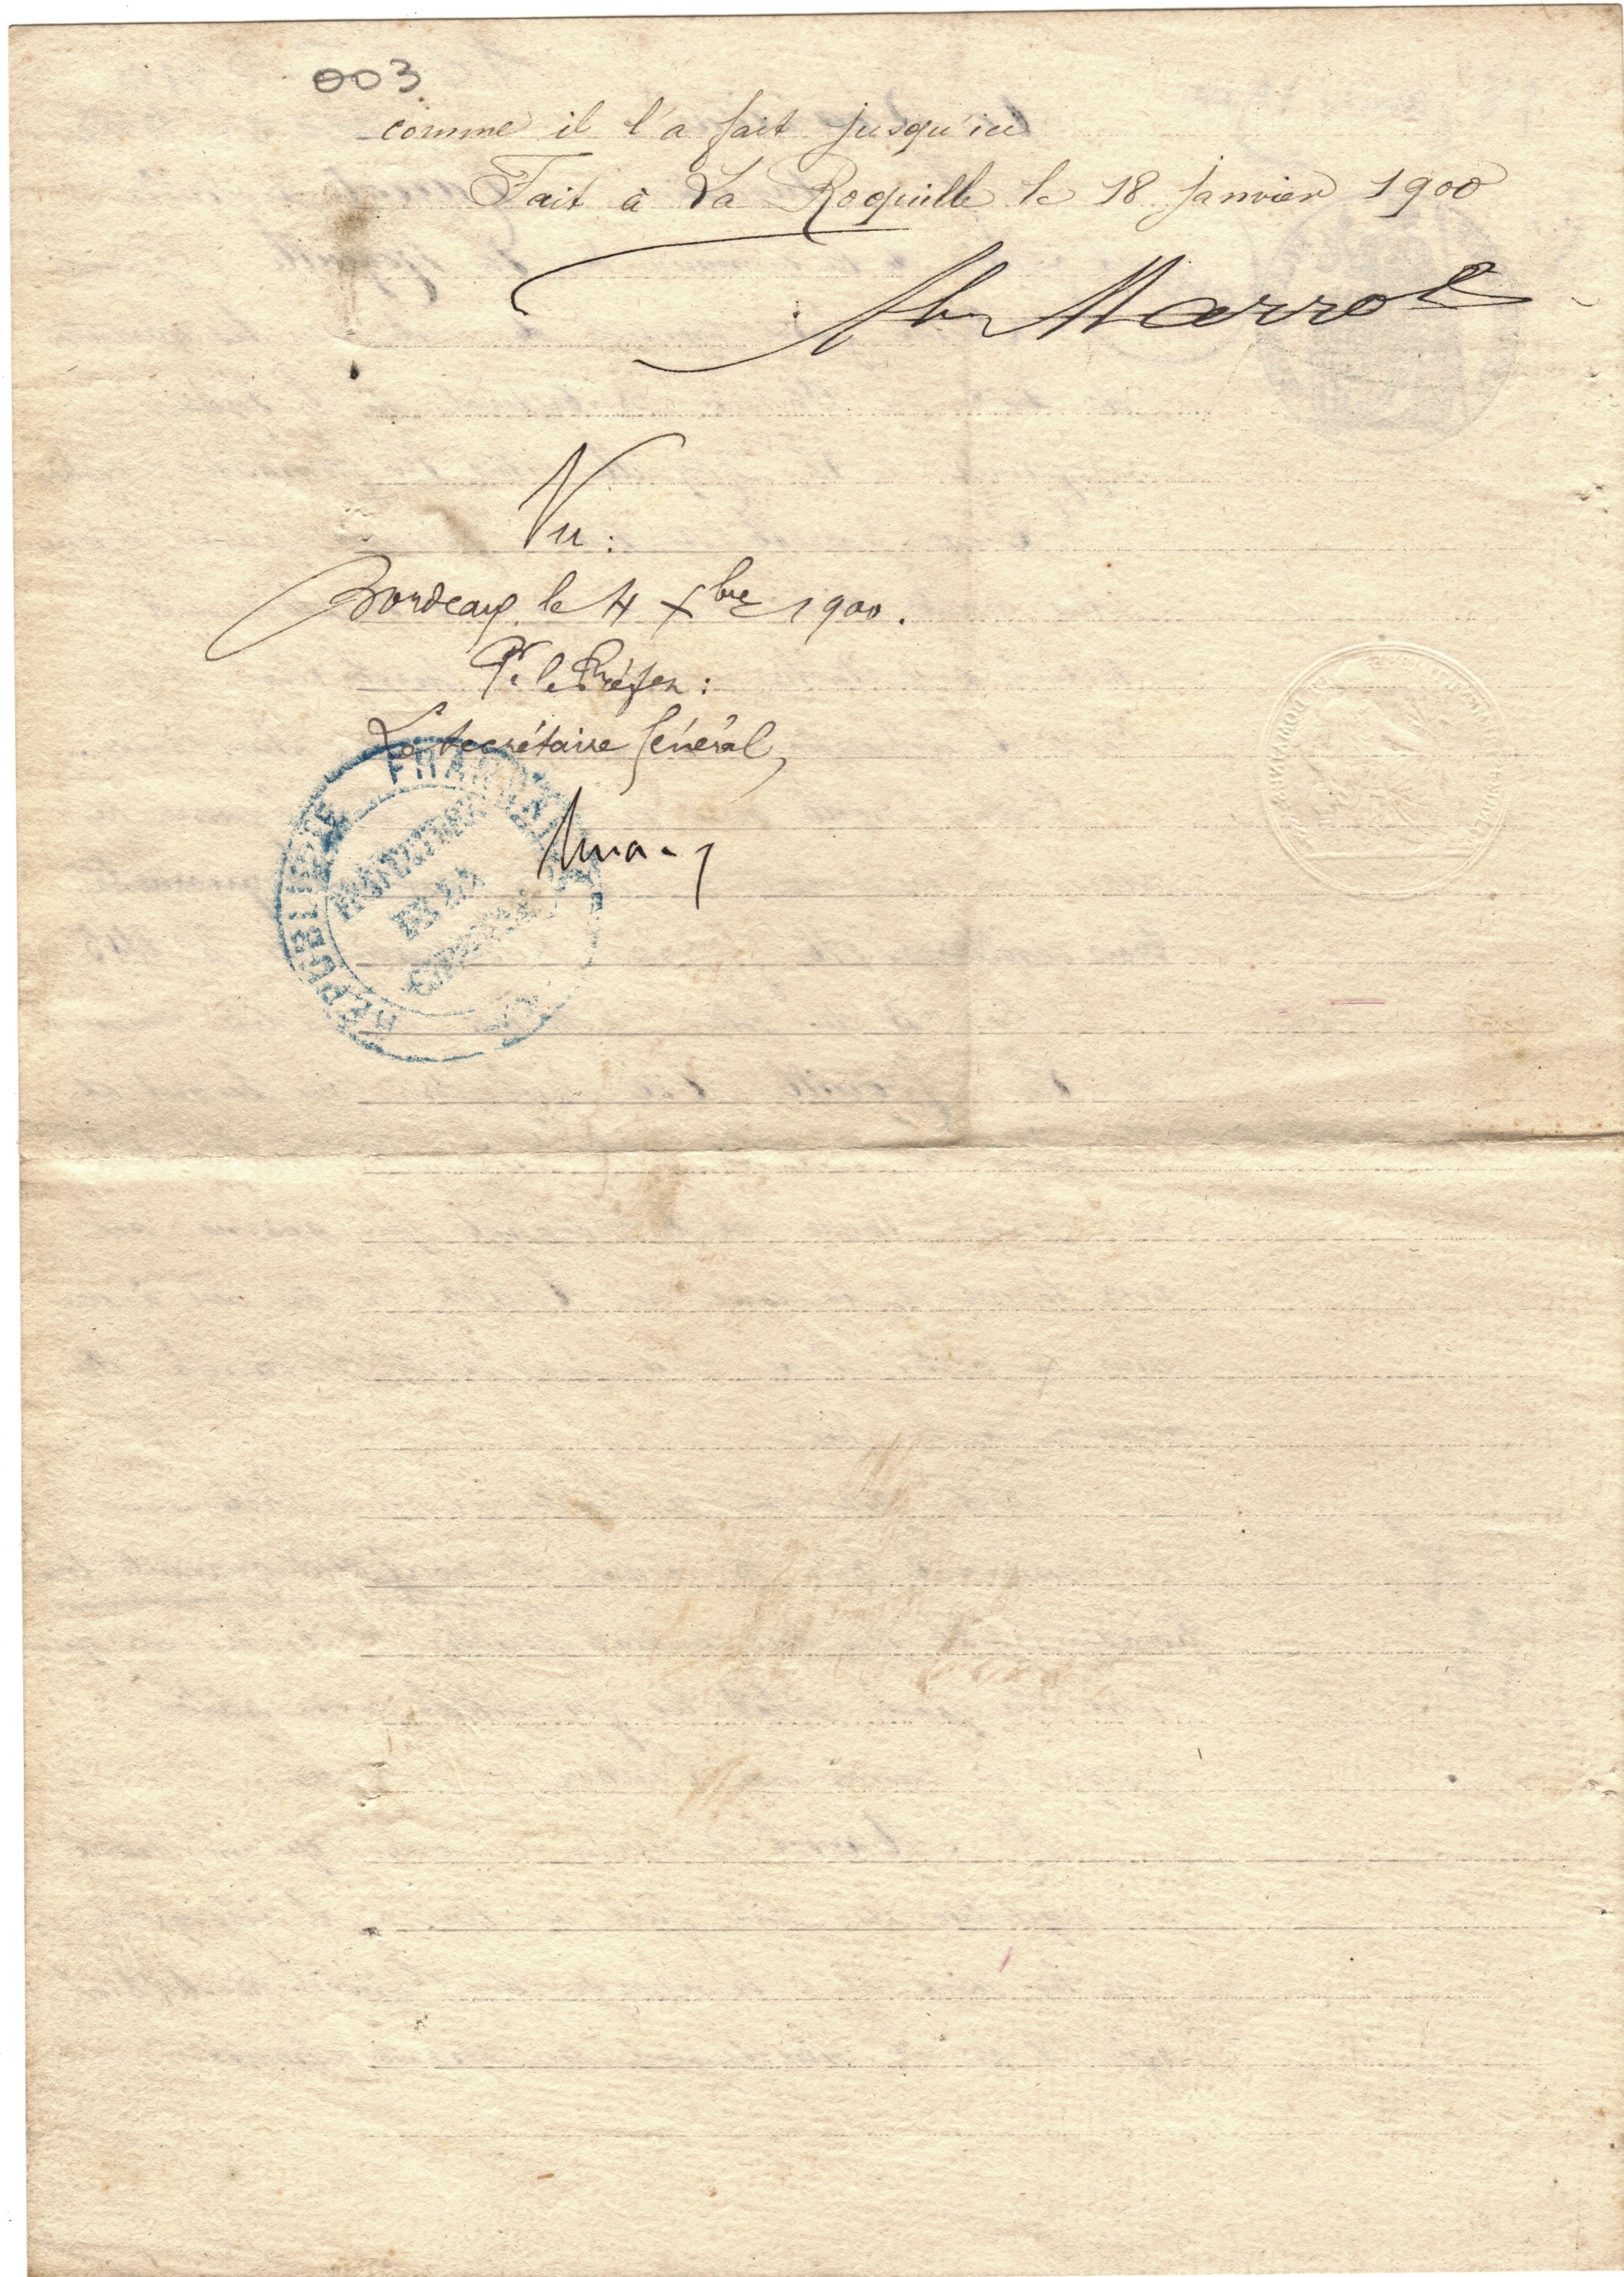 003
comme il l'a fait jusqu'ici
Fait à La Roquille le 18 Janvier 1900
Marrot
Vu :
Bordeaux, le 4 Xbre 1900.
Pr le Préfet :
Le Secrétaire Général,
RÉPUBLIQUE FRANÇAISE